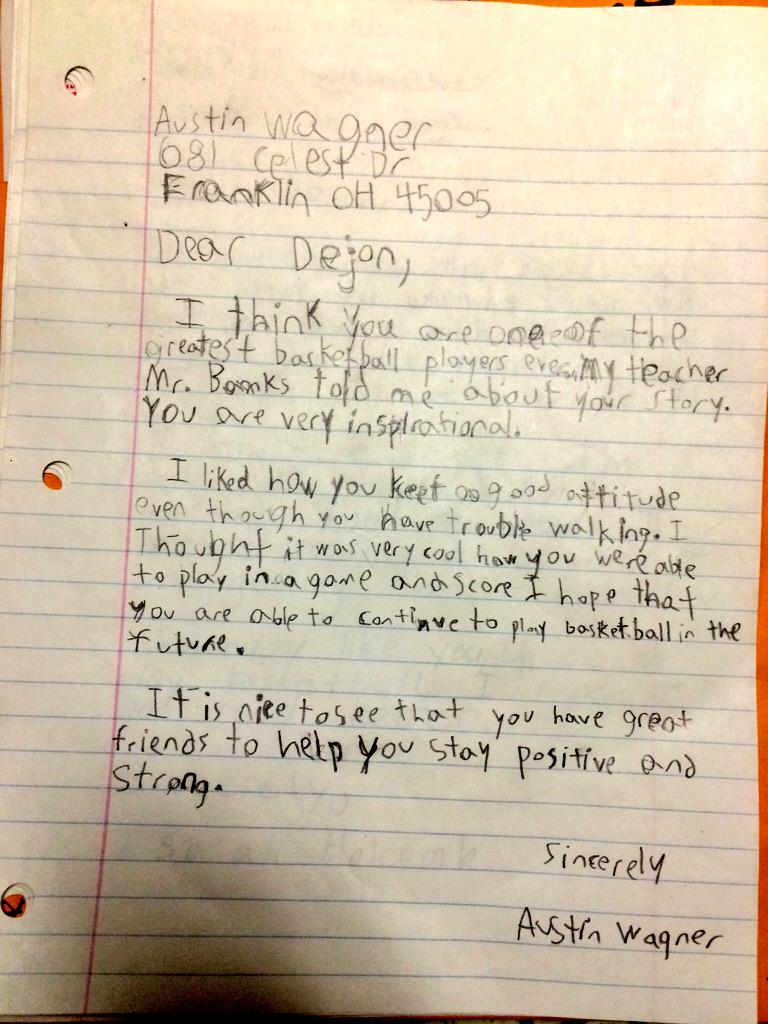 Austin Wagner
681 Celest Dr
Franklin OH 45005
Dear Dejon,
I think you are one of the
greatest basketball players ever. My teacher
Mr. Bonks told me about your story.
You are very inspirational.
I liked how you keep a good attitude
even though you have trouble walking. I
Thought it was very cool how you were able
to play in a game and score I hope that
you are able to continue to play basketball in the
future.
It is nice to see that you have great
friends to help you stay positive and
strong.
Sincerely
Austin Wagner